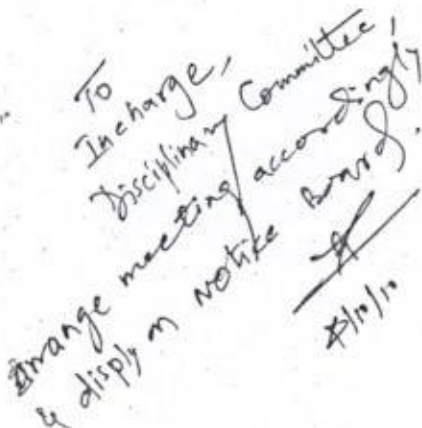 To
Incharge,
Disciplinary Committee,
Arrange meeting accordingly
& disply on Notice Board.
/10/10